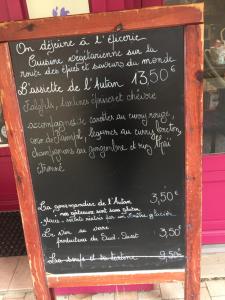 On déjeune à l'épicerie
Cuisine végétarienne sur la
route des épices et saveurs du monde
L'assiette de l'Autan 13,50€
Falafels, tartines et chèvre
accompagnés de carottes au curry rouge,
légumes au curry
champignons au gingembre et riz thaï
citronné
La gourmandise de l'Autan 3,50€
nos gâteaux sont sans gluten
glaces, sorbets réalisés par un Maître glacier
Le Vin au verre 3,50
producteurs du Sud-Ouest
La soupe et sa tartine 9,50€